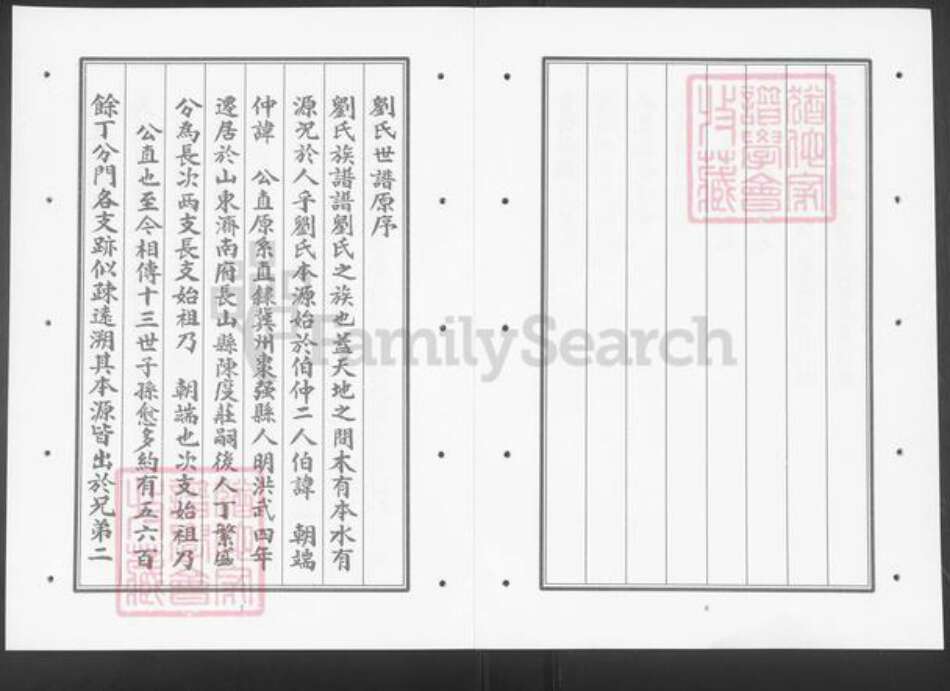 劉氏世譜原序
劉氏族譜譜劉氏之族也蓋天地之間木有本水有
源況於人乎劉氏本源始於伯仲二人伯諱　朝端
仲諱　公直原系直隸冀州棗强縣人明洪武四年
遷居於山東濟南府長山縣陳度莊嗣後人丁繁盛
分為長次兩支長支始祖乃　朝端也次支始祖乃
公直也至今相傳十三世子孫愈多約有五六百
餘丁分門各支跡似疎遠溯其本源皆出於兄弟二
FamilySearch
猶他家
譜學會
收藏
猶他家
譜學會
收藏